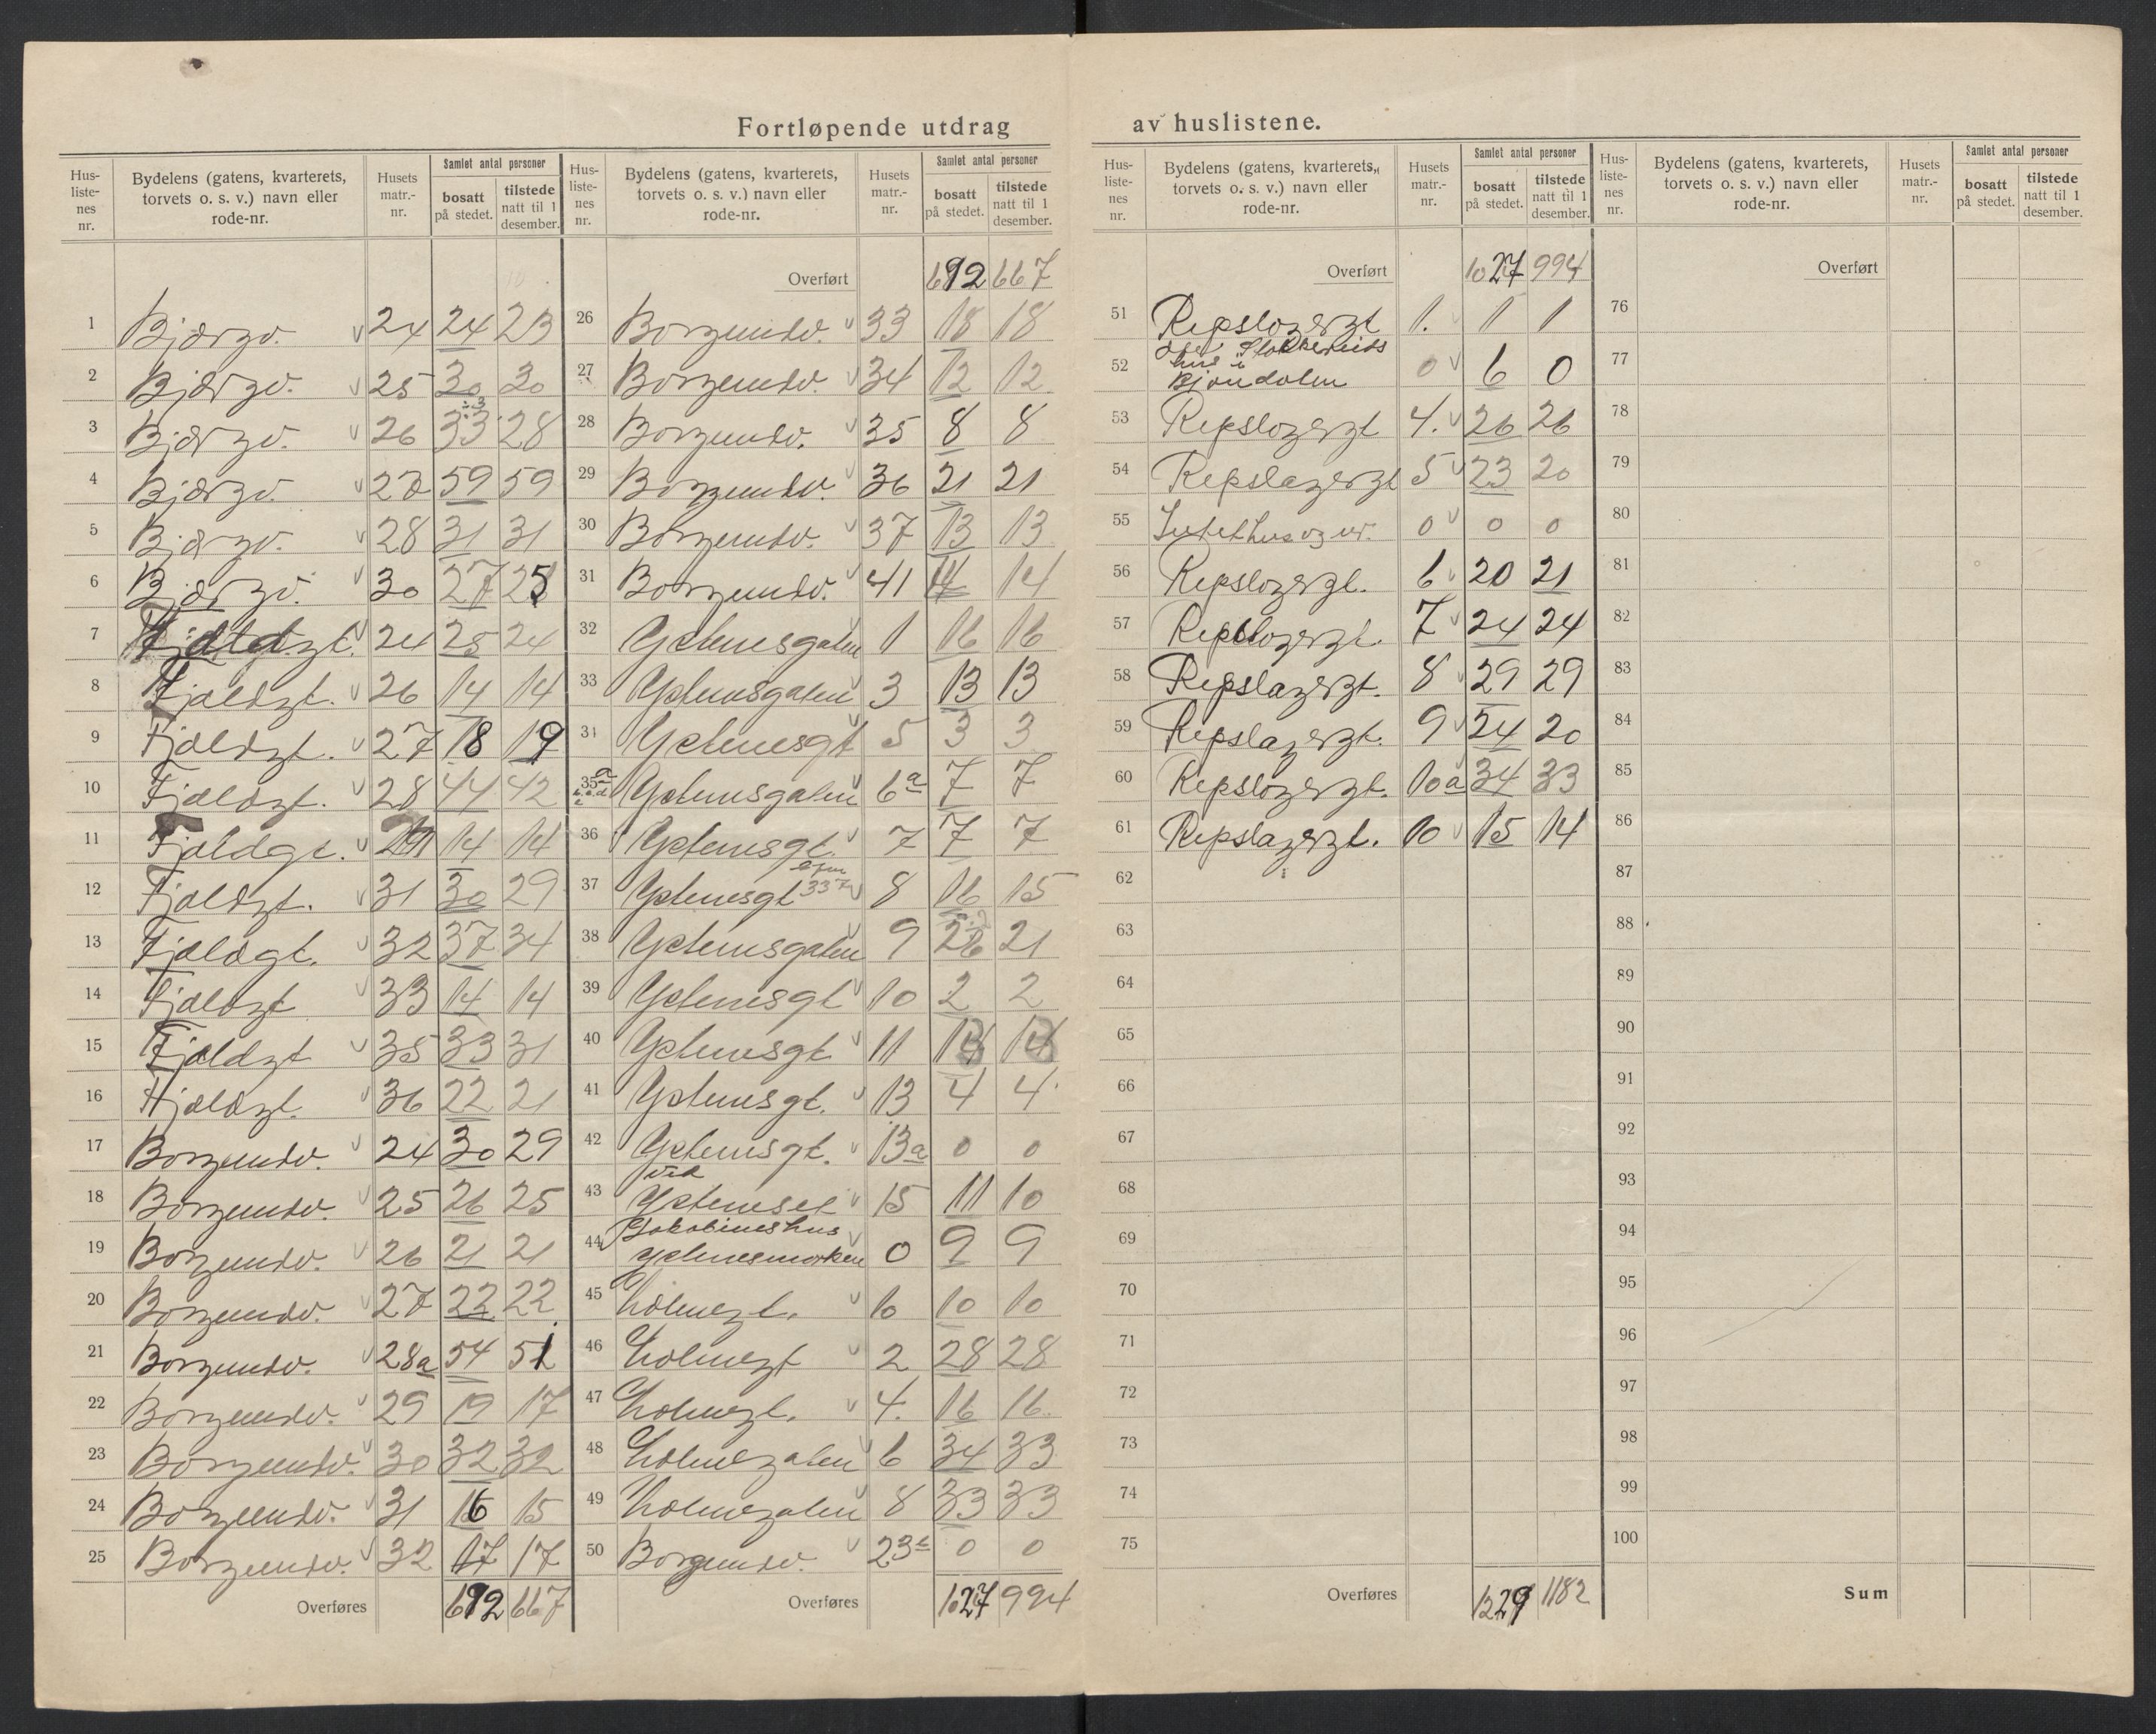 Fortløpende utdrag av huslistene.
Hus-liste-nes nr. Bydelens (gatens, kvarterets, torvets o. s. v.) navn eller rode-nr. Husets matr.-nr. Samlet antal personer bosatt på stedet. tilstede natt til 1 desember.
1 Bjørgv. 24 24 23
2 Bjørgv. 25 30 30
3 Bjørgv. 26 33 28
4 Bjørgv. 27 59 59
5 Bjørgv. 28 31 31
6 Bjørgv. 30 27 25
7 Fjeldgt. 24 25 24
8 Fjeldgt. 26 14 14
9 Fjeldgt. 27 18 19
10 Fjeldgt. 28 44 42
11 Fjeldgt. 29 14 14
12 Fjeldgt. 31 30 29
13 Fjeldgt. 32 37 34
14 Fjeldgt 33 14 14
15 Fjeldgt 35 33 31
16 Fjeldgt. 36 22 21
17 Borgundv. 24 30 29
18 Borgundv. 25 26 25
19 Borgundv. 26 21 21
20 Borgundv. 27 22 22
21 Borgundv. 28a 54 51
22 Borgundv. 29 19 17
23 Borgundv. 30 32 32
24 Borgundv. 31 16 15
25 Borgundv. 32 17 17
Overføres 692 667
Hus-liste-nes nr. Bydelens (gatens, kvarterets, torvets o. s. v.) navn eller rode-nr. Husets matr.-nr. Samlet antal personer bosatt på stedet. tilstede natt til 1 desember.
Overført 692 667
26 Borgundv. 33 18 18
27 Borgundv. 34 12 12
28 Borgundv. 35 8 8
29 Borgundv. 36 21 21
30 Borgundv. 37 13 13
31 Borgundv. 41 14 14
32 Ystenesgaten 1 16 16
33 Ystenesgaten 3 13 13
34 Ystenesgt 5 3 3
35a Ystenesgaten 6a 7 7
36 Ystenesgt. 7 7 7
37 Ystenesgt 8 16 15
38 Ystenesgaten 9 26 21
39 Ystenesgt 10 2 2
40 Ystenesgt. 11
41 Ystenesgt. 13 4 4
42 Ystenesgt. 13a 0 0
43 ved Ysteneset 15 11 10
44 Jakobineshus Ystenesmarken 0 9 9
45 Holmegt. 10 10
46 Holmegt 2 28 28
47 Holmegt. 4. 16 16
48 Holmegaten 6 34 33
49 Holmegaten 8 33 33
50 Borgundv. 0 0
Overføres 1027 994
Hus-liste-nes nr. Bydelens (gatens, kvarterets, torvets o. s. v.) navn eller rode-nr. Husets matr.-nr. Samlet antal personer bosatt på stedet. tilstede natt til 1 desember.
Overført 1027 994
51 Repslagergt 1. 1 1
52 hus i 0 6 0
53 Repslagergt 4. 26 26
54 Repslagergt 5 23 20
55 0 0 0
56 Repslagergt. 6 20 21
57 Repslagergt. 7 24 24
58 Repslagergt. 8 29 29
59 Repslagergt. 9 24 20
60 Repslagergt. 10a 34 33
61 Repslagergt. 10 15 14
62
63
64
65
66
67
68
69
70
71
72
73
74
75
Overføres 1229 1182
Hus-liste-nes nr. Bydelens (gatens, kvarterets, torvets o. s. v.) navn eller rode-nr. Husets matr.-nr. Samlet antal personer bosatt på stedet. tilstede natt til 1 desember.
Overført
76
77
78
79
80
81
82
83
84
85
86
87
88
89
90
91
92
93
94
95
96
97
98
99
100
Sum